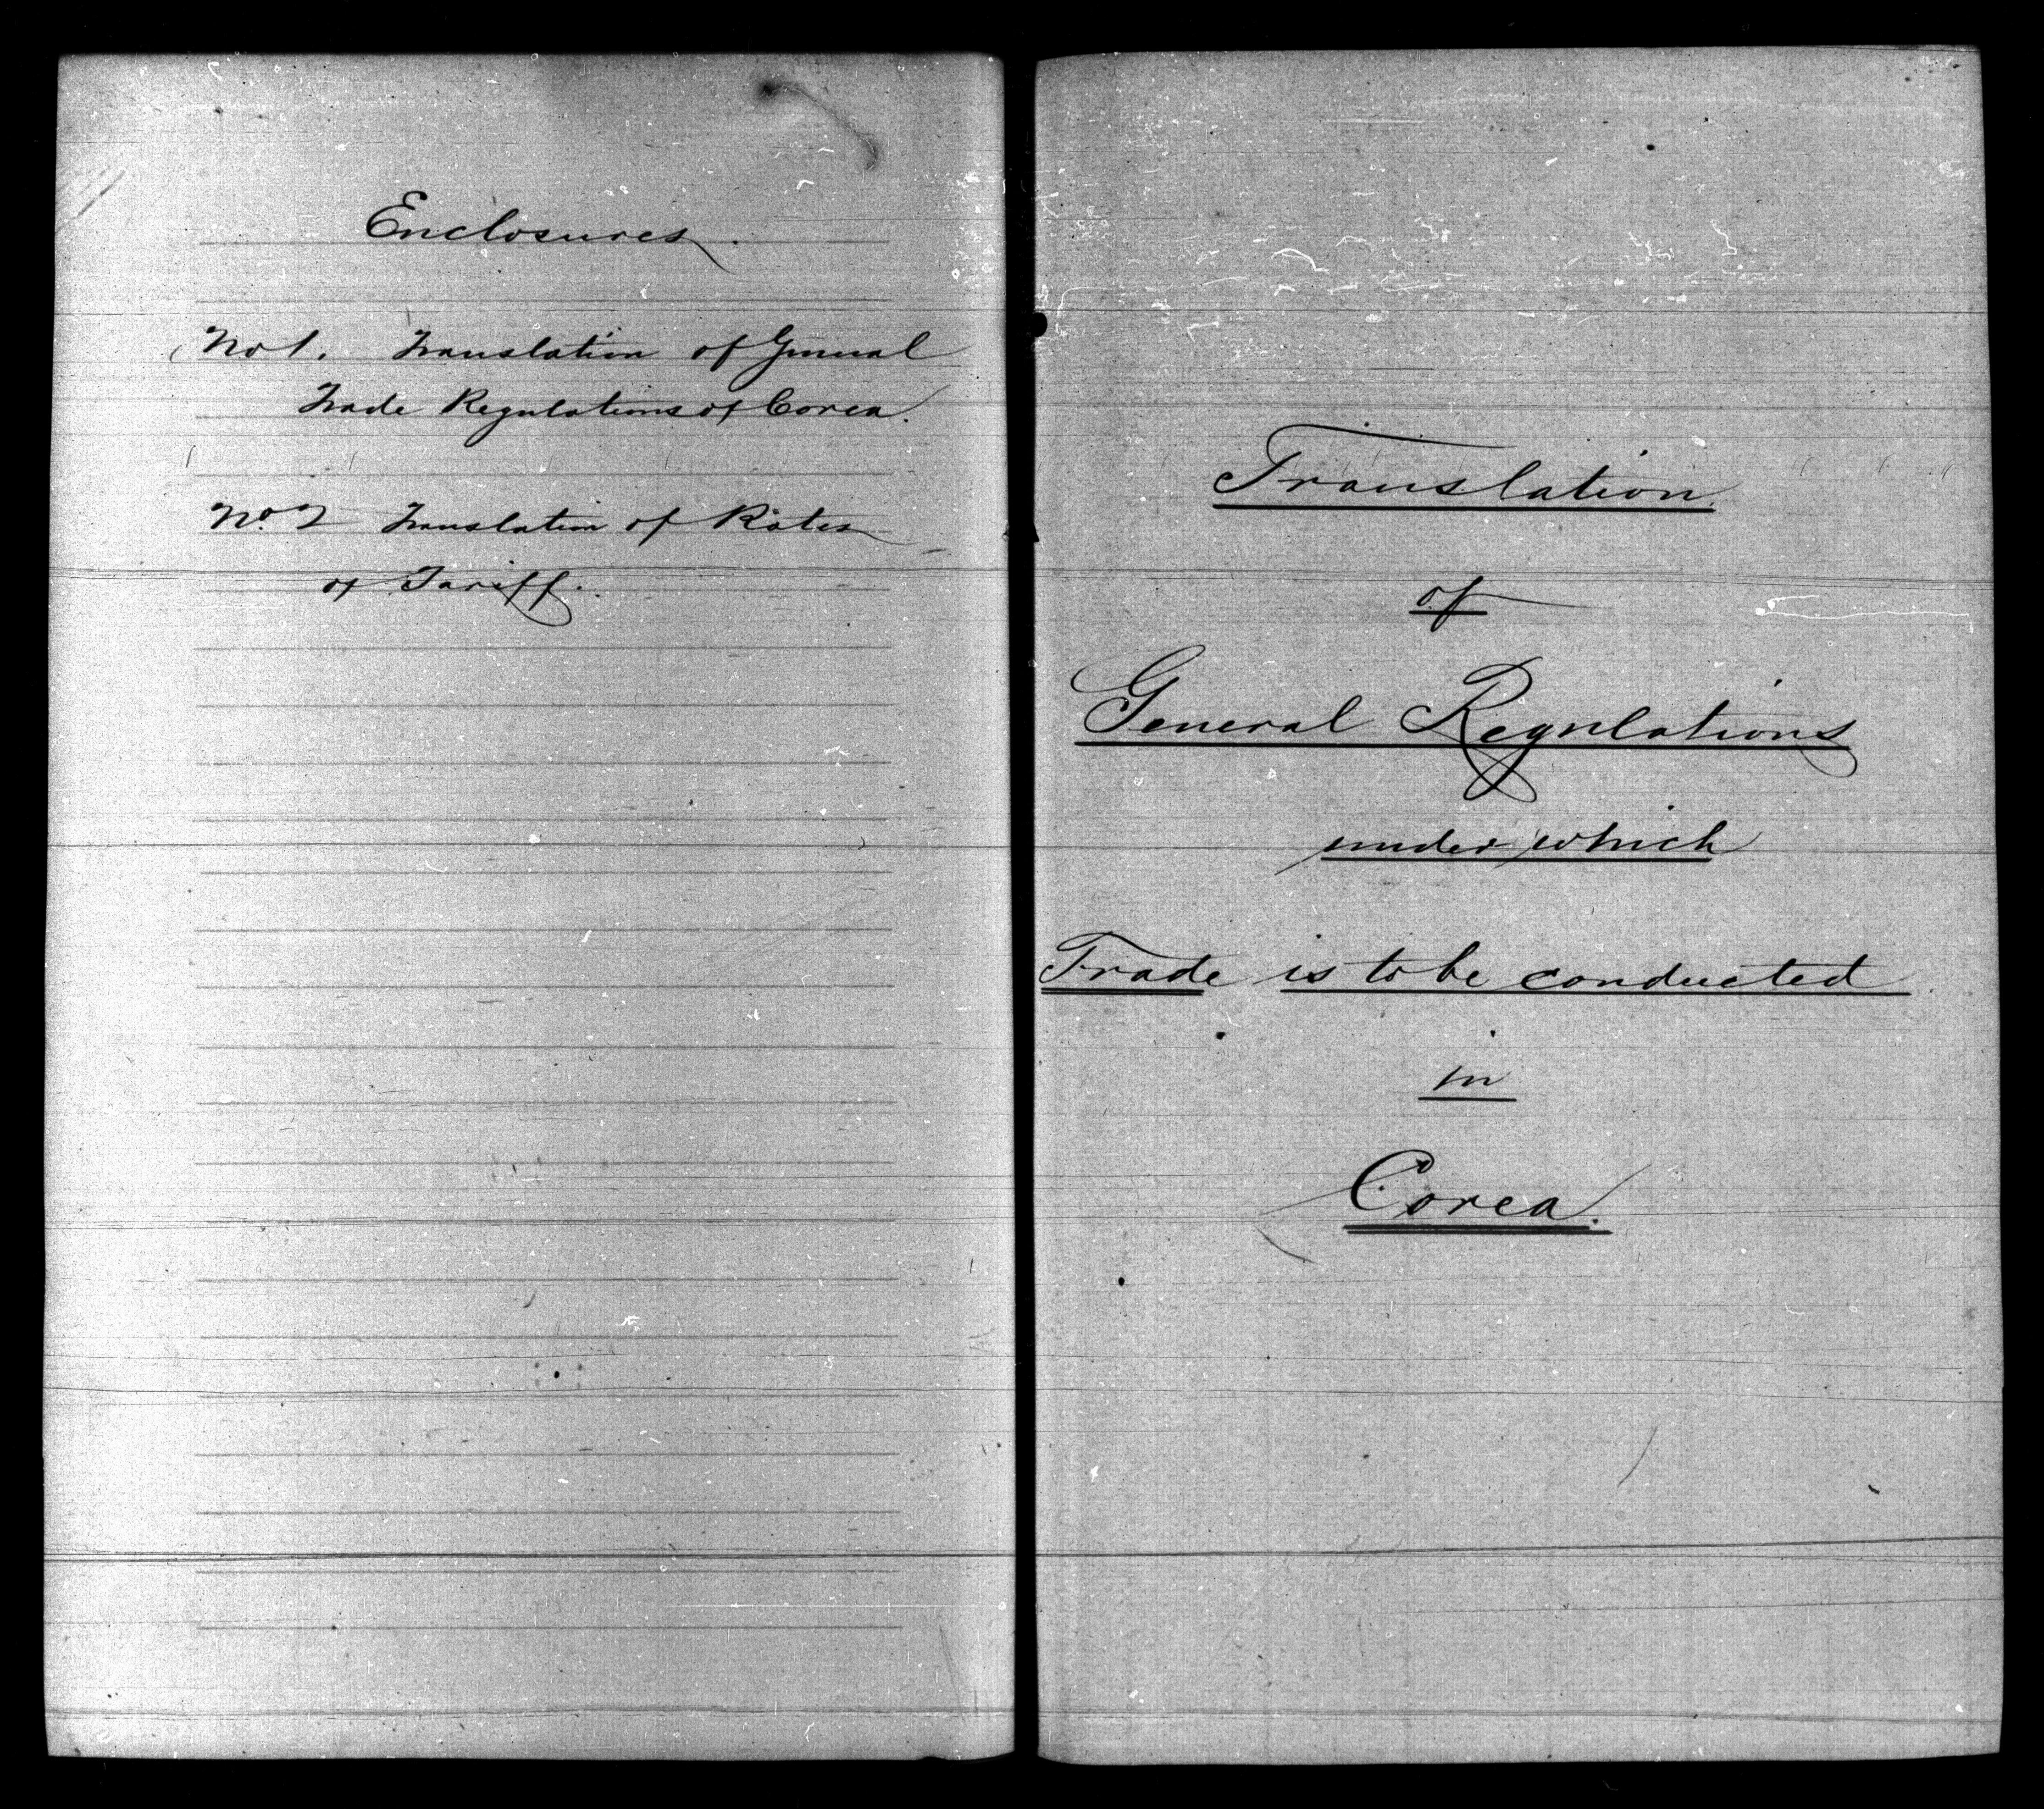 Enclosures.
No 1. Translation of General
Trade Regulations of Corea.
No. 2 Translation of Rates
of Tariff.
Translation
of
General Regulations
under which
Trade is to be conducted
in
Corea.